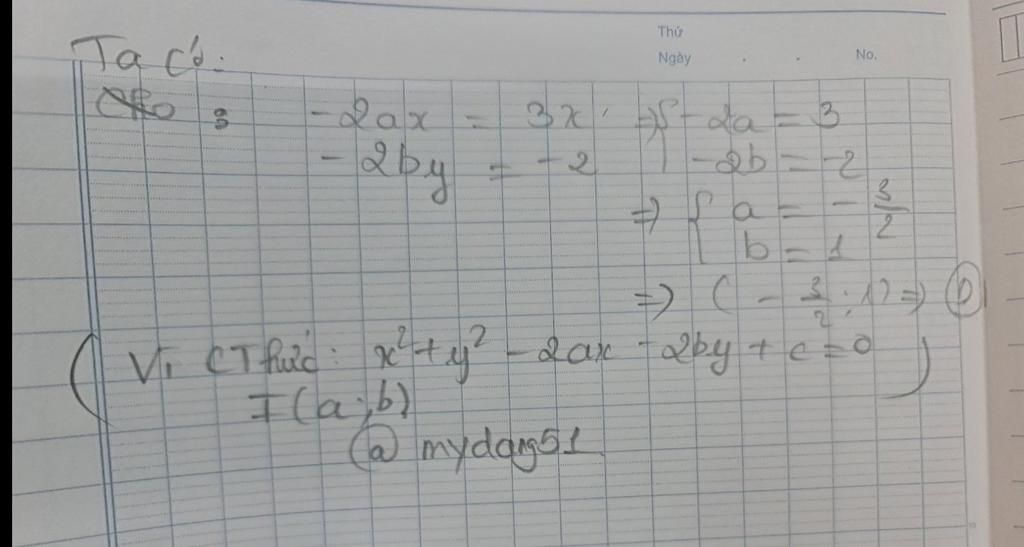 Thứ
Ngày . . No.
Ta có:
: -2ax = 3x => { -2a = 3
-2by = -2 { -2b = -2
=> { a = - 3/2
{ b = 1
=> ( - 3/2 ; 1) => (b)
( Vì CThức: x² + y² - 2ax - 2by + c = 0 )
I(a;b)
@ mydgng51